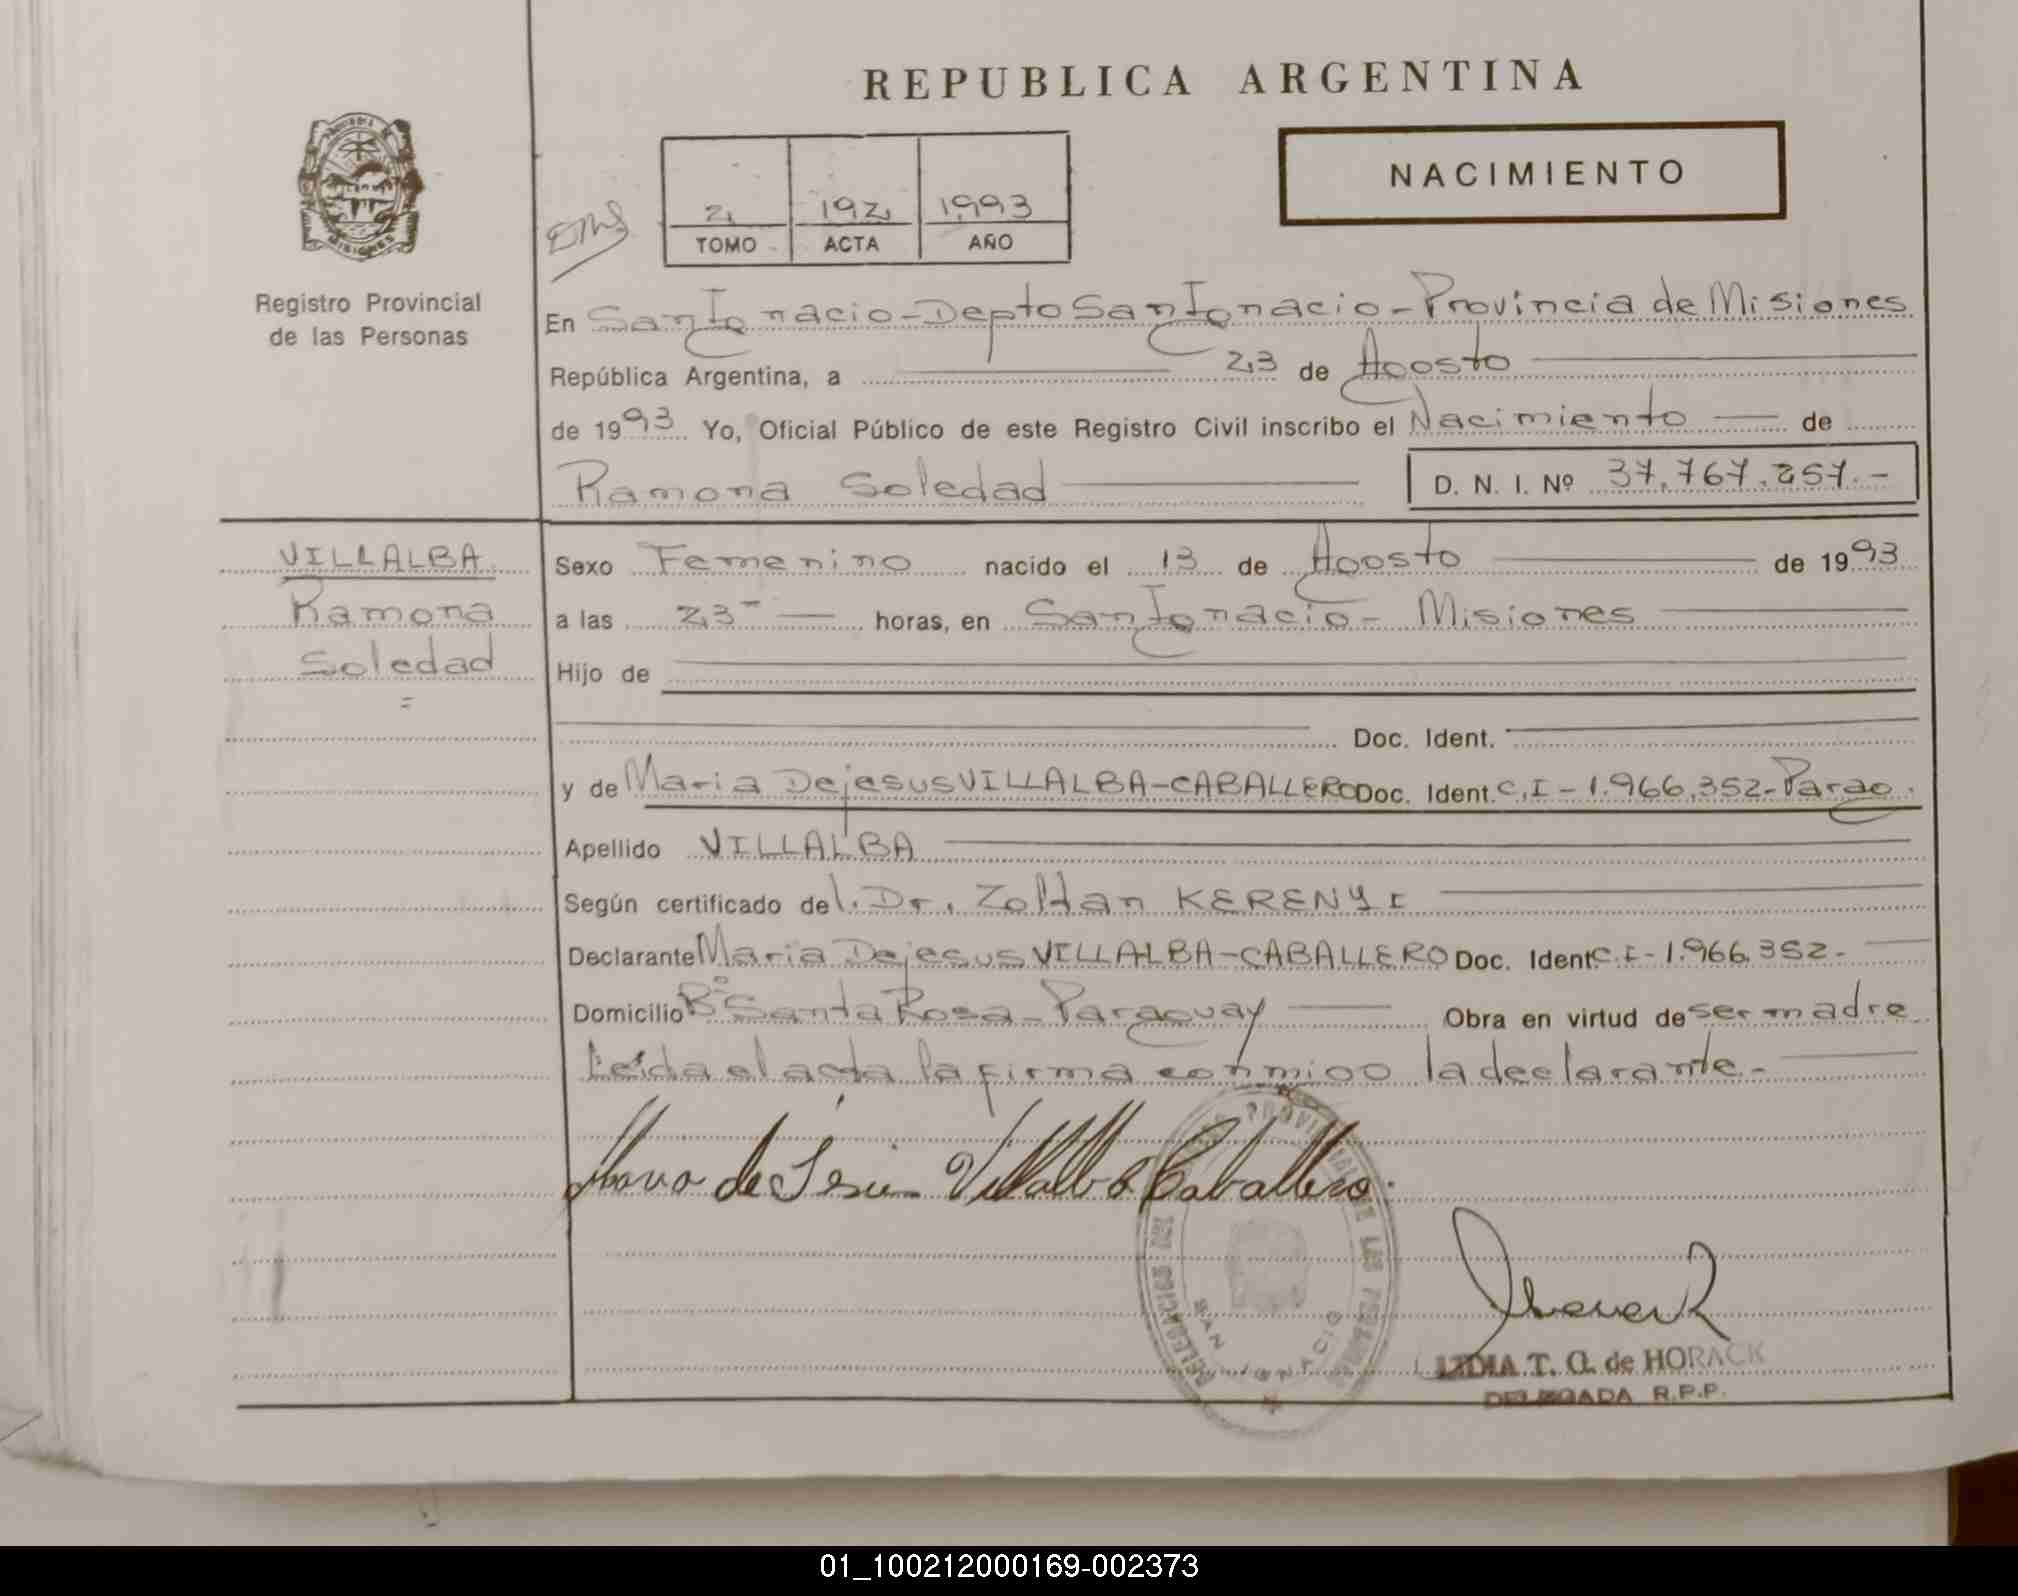 REPUBLICA ARGENTINA
NACIMIENTO
2 192 1993
TOMO ACTA AÑO
Registro Provincial
de las Personas
En San Ignacio - Depto San Ignacio - Provincia de Misiones
República Argentina, a 23 de Agosto
de 1993 Yo, Oficial Público de este Registro Civil inscribo el Nacimiento de
Ramona Soledad D. N. I. Nº 37.767.257.-
VILLALBA
Ramona
Soledad
=
Sexo Femenino nacido el 13 de Agosto de 1993
a las 23- horas, en San Ignacio - Misiones
Hijo de
Doc. Ident.
y de Maria Dejesus VILLALBA-CABALLERO Doc. Ident. C.I - 1.966.352- Parag.
Apellido VILLALBA
Según certificado del. Dr. Zoltan KERENYI
Declarante Maria Dejesus VILLALBA-CABALLERO Doc. Ident C.I - 1.966.352-
Domicilio Bº Santa Rosa - Paraguay Obra en virtud de ser madre
Leida el acta la firma conmigo la declarante.-
Maria de Jesús Villalba Caballero.
SAN IGNACIO
LIDIA T. G. de HORACK
DELEGADA R.P.P.
01_100212000169-002373